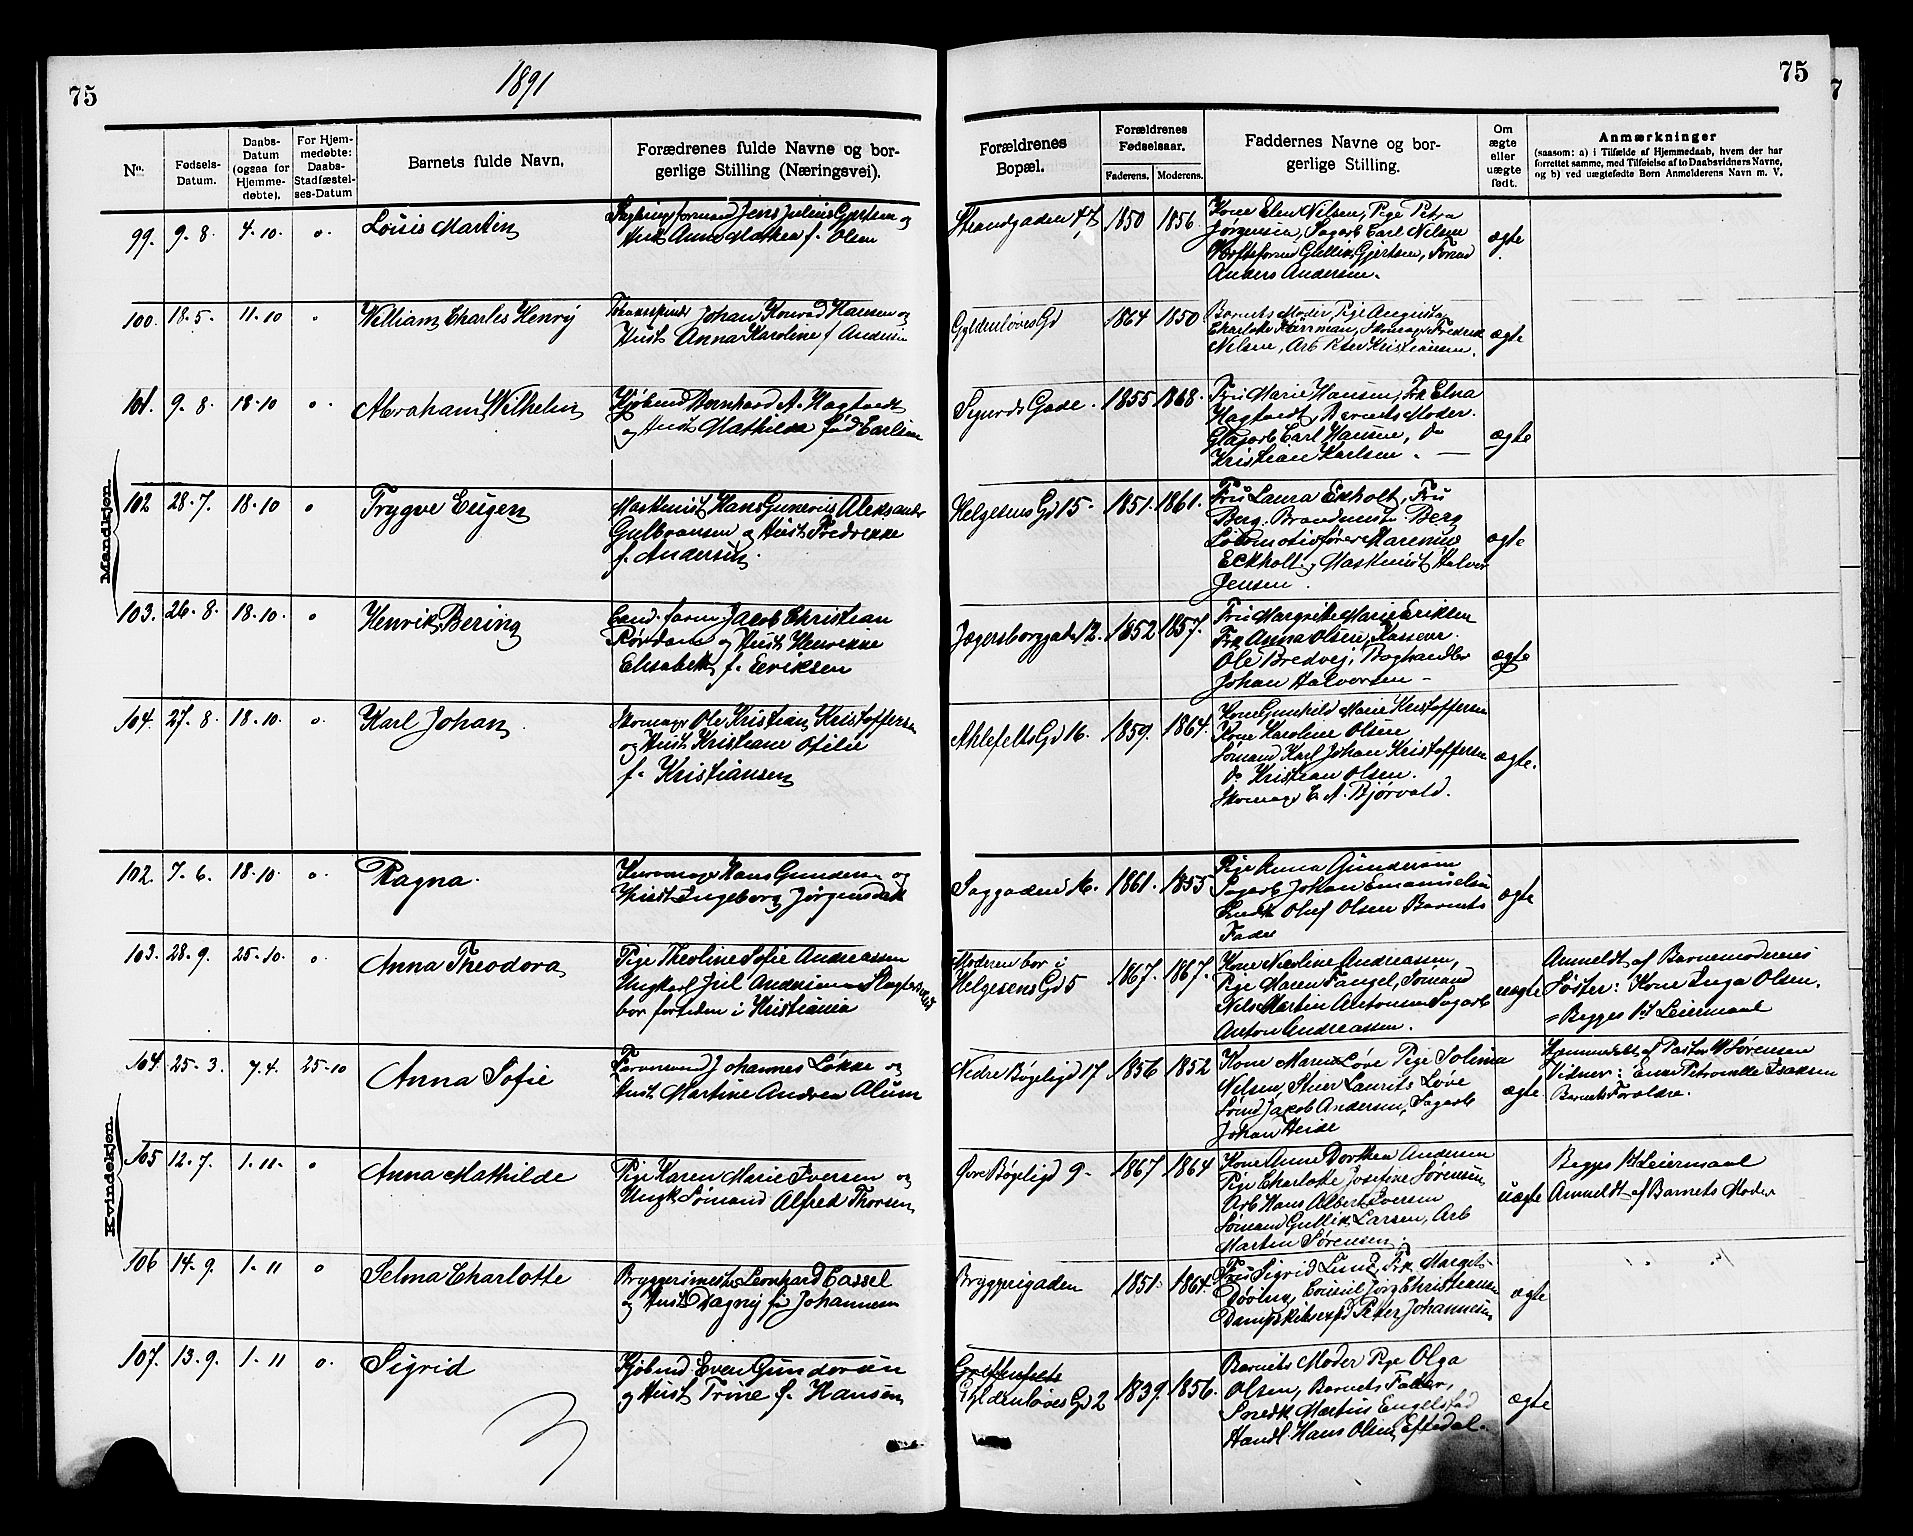 75
1891
75
No.
Fødsels-
Datum.
Daabs-
Datum
(ogsaa for
Hjemme-
døbte).
For Hjem-
medøbte:
Daabs-
Stadfæstel-
ses-Datum
Barnets fulde Navn.
Forædrenes fulde Navne og bor-
gerlige Stilling (Næringsvei).
Forældrenes
Bopæl.
Forældrenes
Fødselsaar.
Faderens.
Moderens.
Faddernes Navne og bor-
gerlige Stilling.
Om
ægte
eller
uægte
født.
Anmærkninger
(saasom: a) i Tilfælde af Hjemmedaab, hvem der har
forrettet samme, med Tilføielse af to Daabsvidners Navne,
og b) ved uægtefødte Børn Anmelderens Navn m. V.
Mandkjøn.
99. 9-8. 4-10. o Louis Martin
formand Jens Julius Gjertsen og
Hust Anne Mathea f. Olsen
Strandgaden 47 1850 1856.
Kone Elen Nilsen, Pige Petra
Jørgensen, Sagarb Carl Nilsen
Gullik Gjertsen,
Anders Andersen.
ægte
100. 18-5. 11-10 o William Charles Henry
Johan Konrad Hansen og
Hust Anna Karoline f Andersen
GyldenløvesGd 1864 1850
Barnets Moder, Pige Augusta
Charlotte Skomagr Fredrik
Nilsen, Arb Peter Kristiansen.
ægte
101. 9-8. 18-10 o Abraham Wilhelm
Kjøbmd Bernhard A. Hagtvedt
og Hust Mathilde fød Carlsen
Sigurds Gade. 1855 1868.
Fru Marie Hansen, Frk Elna
Hagtvedt, Barnets Moder.
Carl Hansen, do
Kristian Karlsen. —
ægte
102 28-7. 18-10 o Trygve Eugen
Maskinist Hans Gunerius Aleksander
Gulbransen og Hust Fredrikke
f. Andersen.
HelgesensGd 15- 1851. 1861.
Fru Laura Eckholt, Fru
Berg. Brandmstr. Berg
Lokomotivfører Marenius
Eckholt, Maskinist Halvor
Jensen.
ægte
103. 26-8. 18-10. o Henrik Bering
Cand. farm Jacob Christian
Rørdam og Hust Henrikke
Elisabeth f. Eeriksen
Jægersborggaden 12. 1852 1857.
Fru Margrethe Marie Eriksen
Frk Anna Olsen, Kasserer
Ole Bredvej, Boghandler
Johan Halvorsen -
ægte
104. 27-8. 18-10. o. Karl Johan
Skomagr Ole Kristian Kristoffersen
og Hust Kristiane Ofilie
f. Kristiansen
AhlefeltsGd 16. 1859. 1864.
Kone Gunhild Marie Kristoffersen
Kone Karoline Olsen
Sømand Karl Johan Kristoffersen
do Kristian Olsen.
Skomagr C. A. Bjørvald.
ægte.
Kvindekjøn.
102. 7-6. 18-10. o Ragna.
Hans Gundersen og
Hust Ingeborg Jørgensdatt
Saggaden 16. 1861. 1855
Pige Anna Gundersen
Sagarb Johan Emanuelsen
Snedk Oluf Olsen Barnets
Fader
ægte
103. 28-9. 25-10. o Anna Theodora
Pige Theoline Sofie Andreassen
Ungkarl Juel Andersen
bor fortiden i Kristiania
Moderen bor i
HelgesensGd 5 1867. 1867.
Kone Nicoline Andreassen,
Pige Maren Fangel, Sømand
Nils Martin Antonsen Sagarb
Anton Andreassen.
uægte
Anmeldt af Barnemoderens
Søster: Kone Inga Olsen.
= Begges 1st Leiermaal
104. 25-3. 7-4. 25-10 Anna Sofie
Formand Johannes Løkke og
Hust. Martine Andrea Alum
Nedre Bøgeligd 17 1856 1852
Kone Maren Løve Pige Solima
Nilsen, Laurits Løve
Sømd Jacob Andersen, Sagarb
Johan Heide
ægte
Hjemmedøbt af Pastor W Sørensen
Vidner: Enke Petronelle Isaksen
Barnets Forældre.
105 12-7. 1-11- o Anna Mathilde
Pige Karen Marie Iversen og
Ungk Sømand Alfred Thorsen
Øvre Bøgeligd 9- 1867 1864
Kone Anne Dorthea Andersen
Pige Charlotte Josefine Sørensen
Arb Hans Albert Iversen
Sømand Gullik Larsen, Arb
Martin Sørensen.
uægte
Begges 1st Leiermaal
Anmeldt af Barnets Moder
106 14-9. 1-11 o Selma Charlotte
Bryggerimester Leonhard Cassel
og Hust Dagny f. Johannesen
Bryggerigaden 1851. 1864.
Fru Sigrid Lund, Frk Margit
Consul Jørg Christiansen
Peter Johannesen
ægte
107. 13-9. 1-11 o. Sigrid
Kjøbmd Even Gundersen
og Hust Trine f. Hansen
GyldenløvesGd 2 1839. 1856.
Barnets Moder Pige Olga
Olsen, Barnets Fader,
Snedk Martin Engelstad
Handl. Hans Olsen Eftedal.
ægte